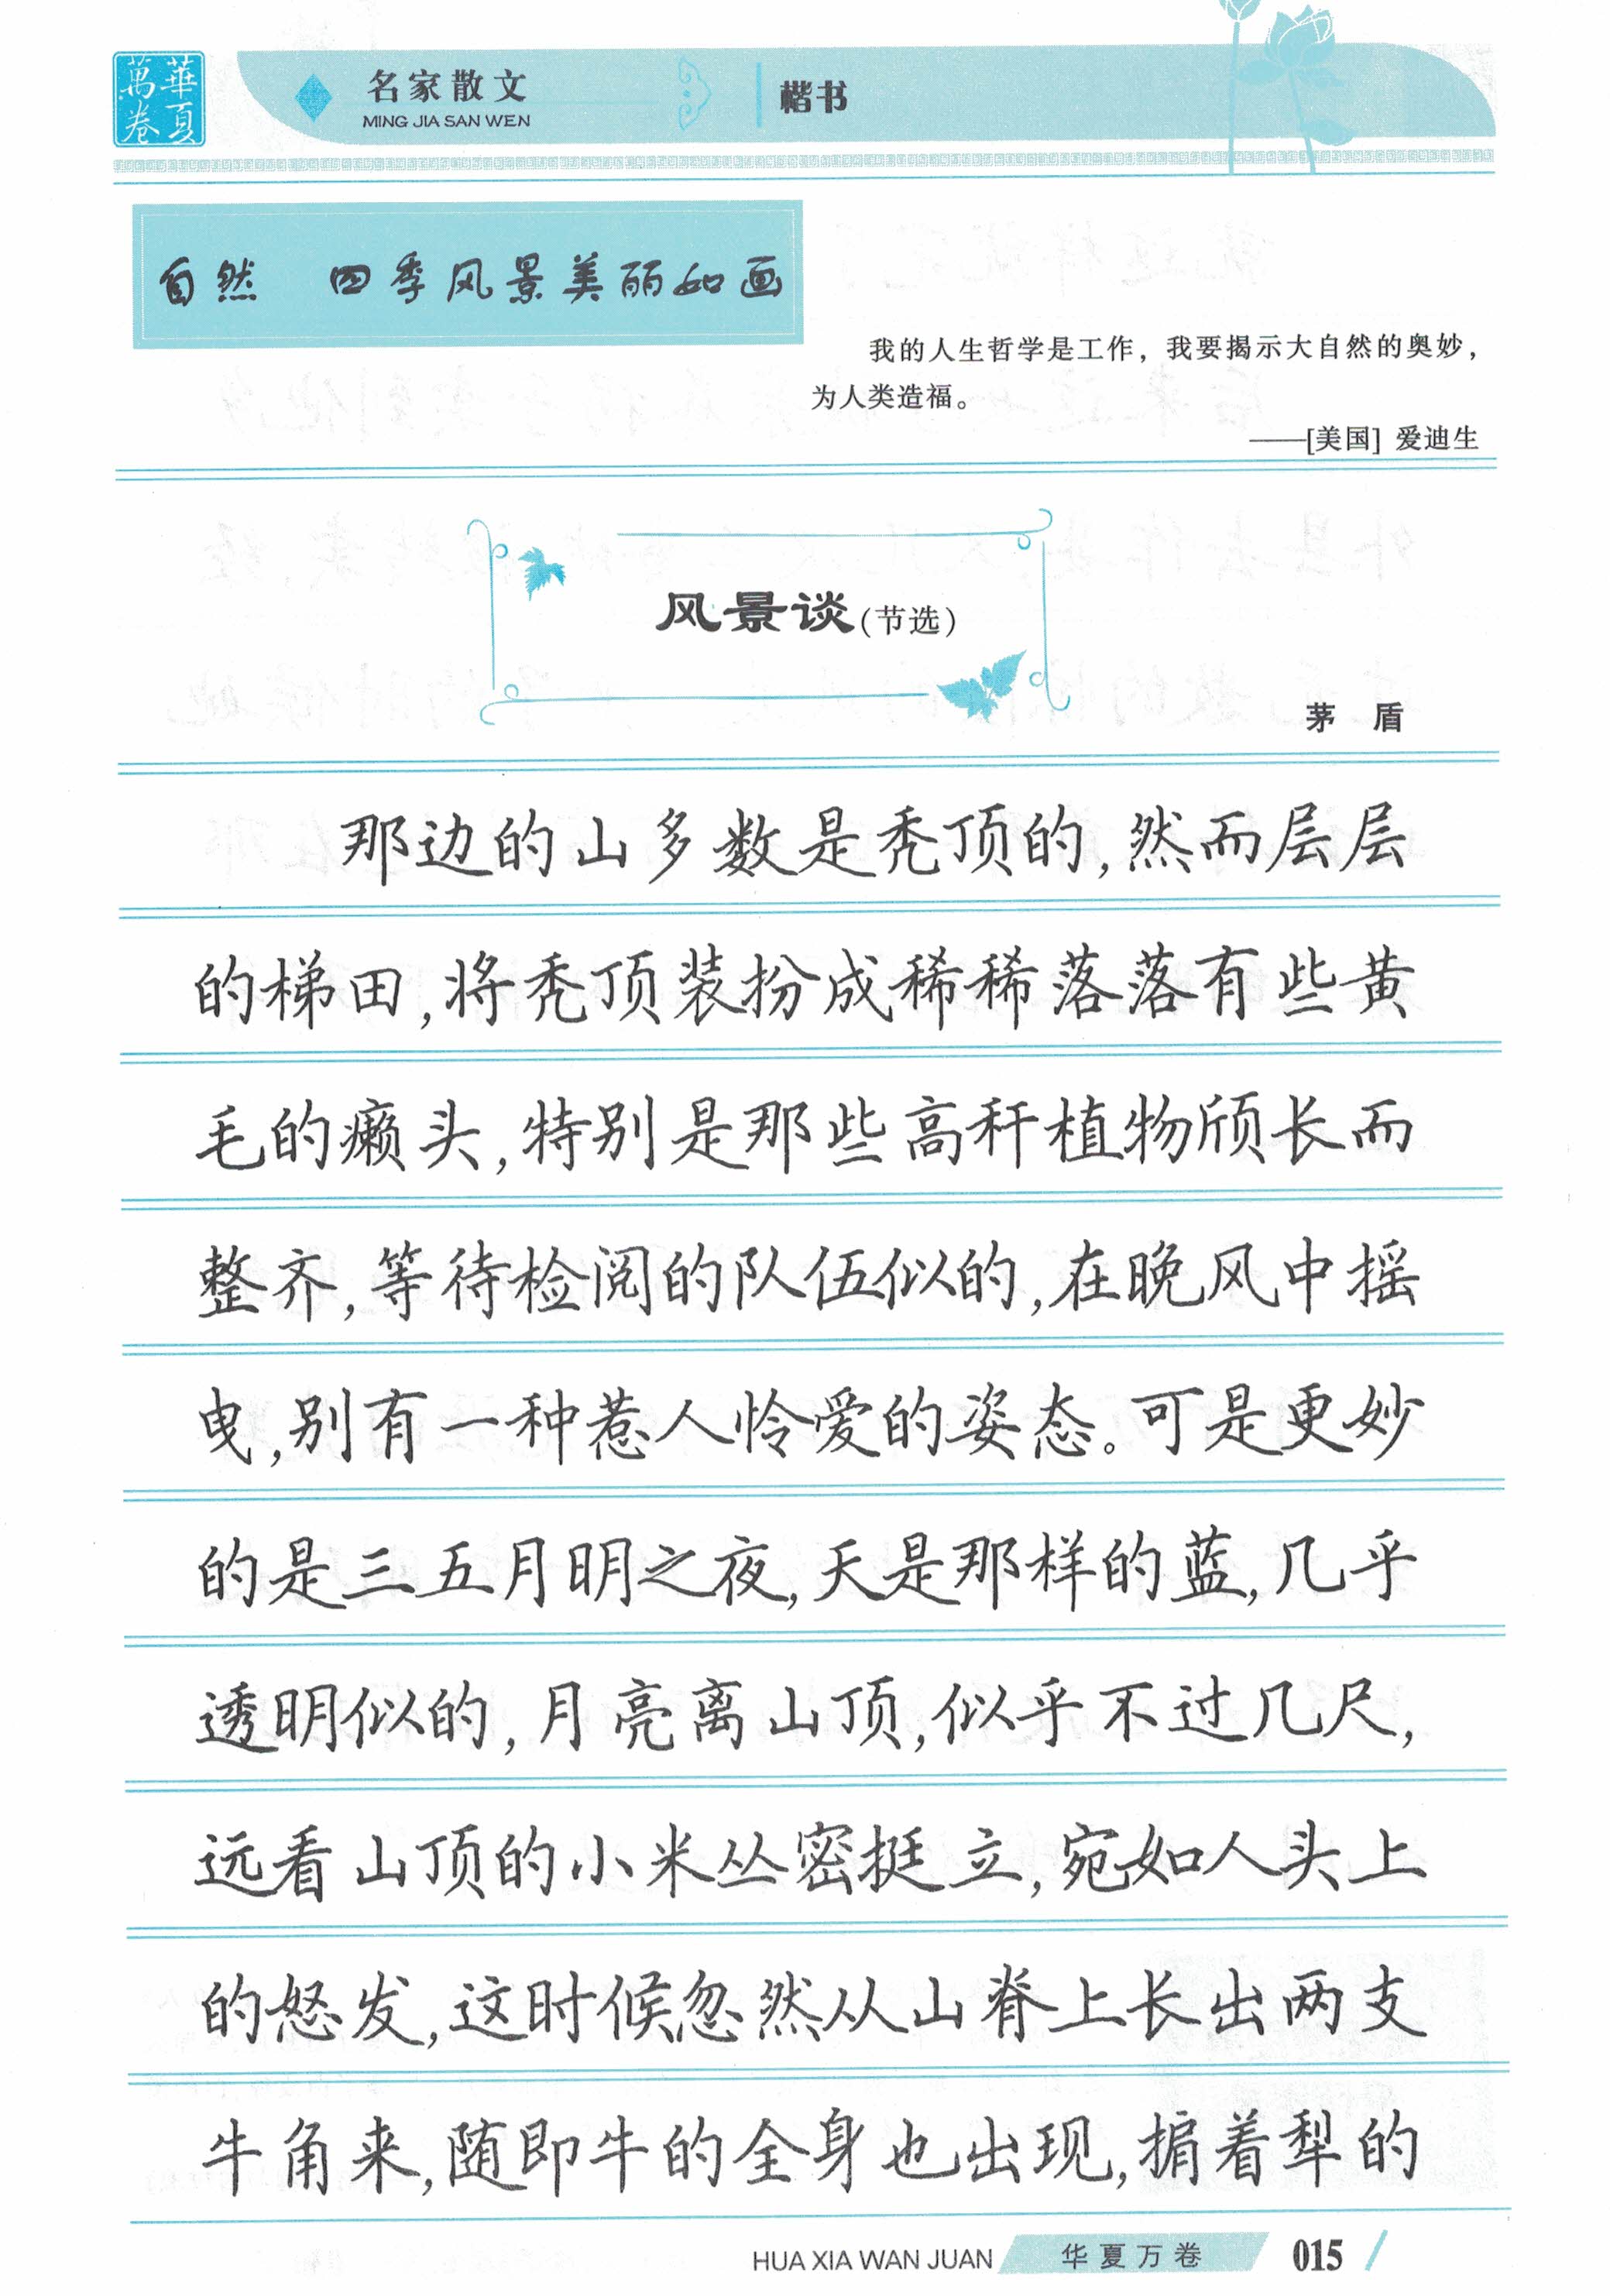 華夏
萬卷
名家散文
MING JIA SAN WEN
楷书
自然 四季风景美丽如画
我的人生哲学是工作，我要揭示大自然的奥妙，
为人类造福。
——[美国] 爱迪生
风景谈(节选)
茅 盾
那边的山多数是秃顶的,然而层层
的梯田,将秃顶装扮成稀稀落落有些黄
毛的癞头,特别是那些高秆植物颀长而
整齐,等待检阅的队伍似的,在晚风中摇
曳,别有一种惹人怜爱的姿态。可是更妙
的是三五月明之夜,天是那样的蓝,几乎
透明似的,月亮离山顶,似乎不过几尺,
远看山顶的小米丛密挺立,宛如人头上
的怒发,这时候忽然从山脊上长出两支
牛角来,随即牛的全身也出现,掮着犁的
HUA XIA WAN JUAN 华夏万卷 015